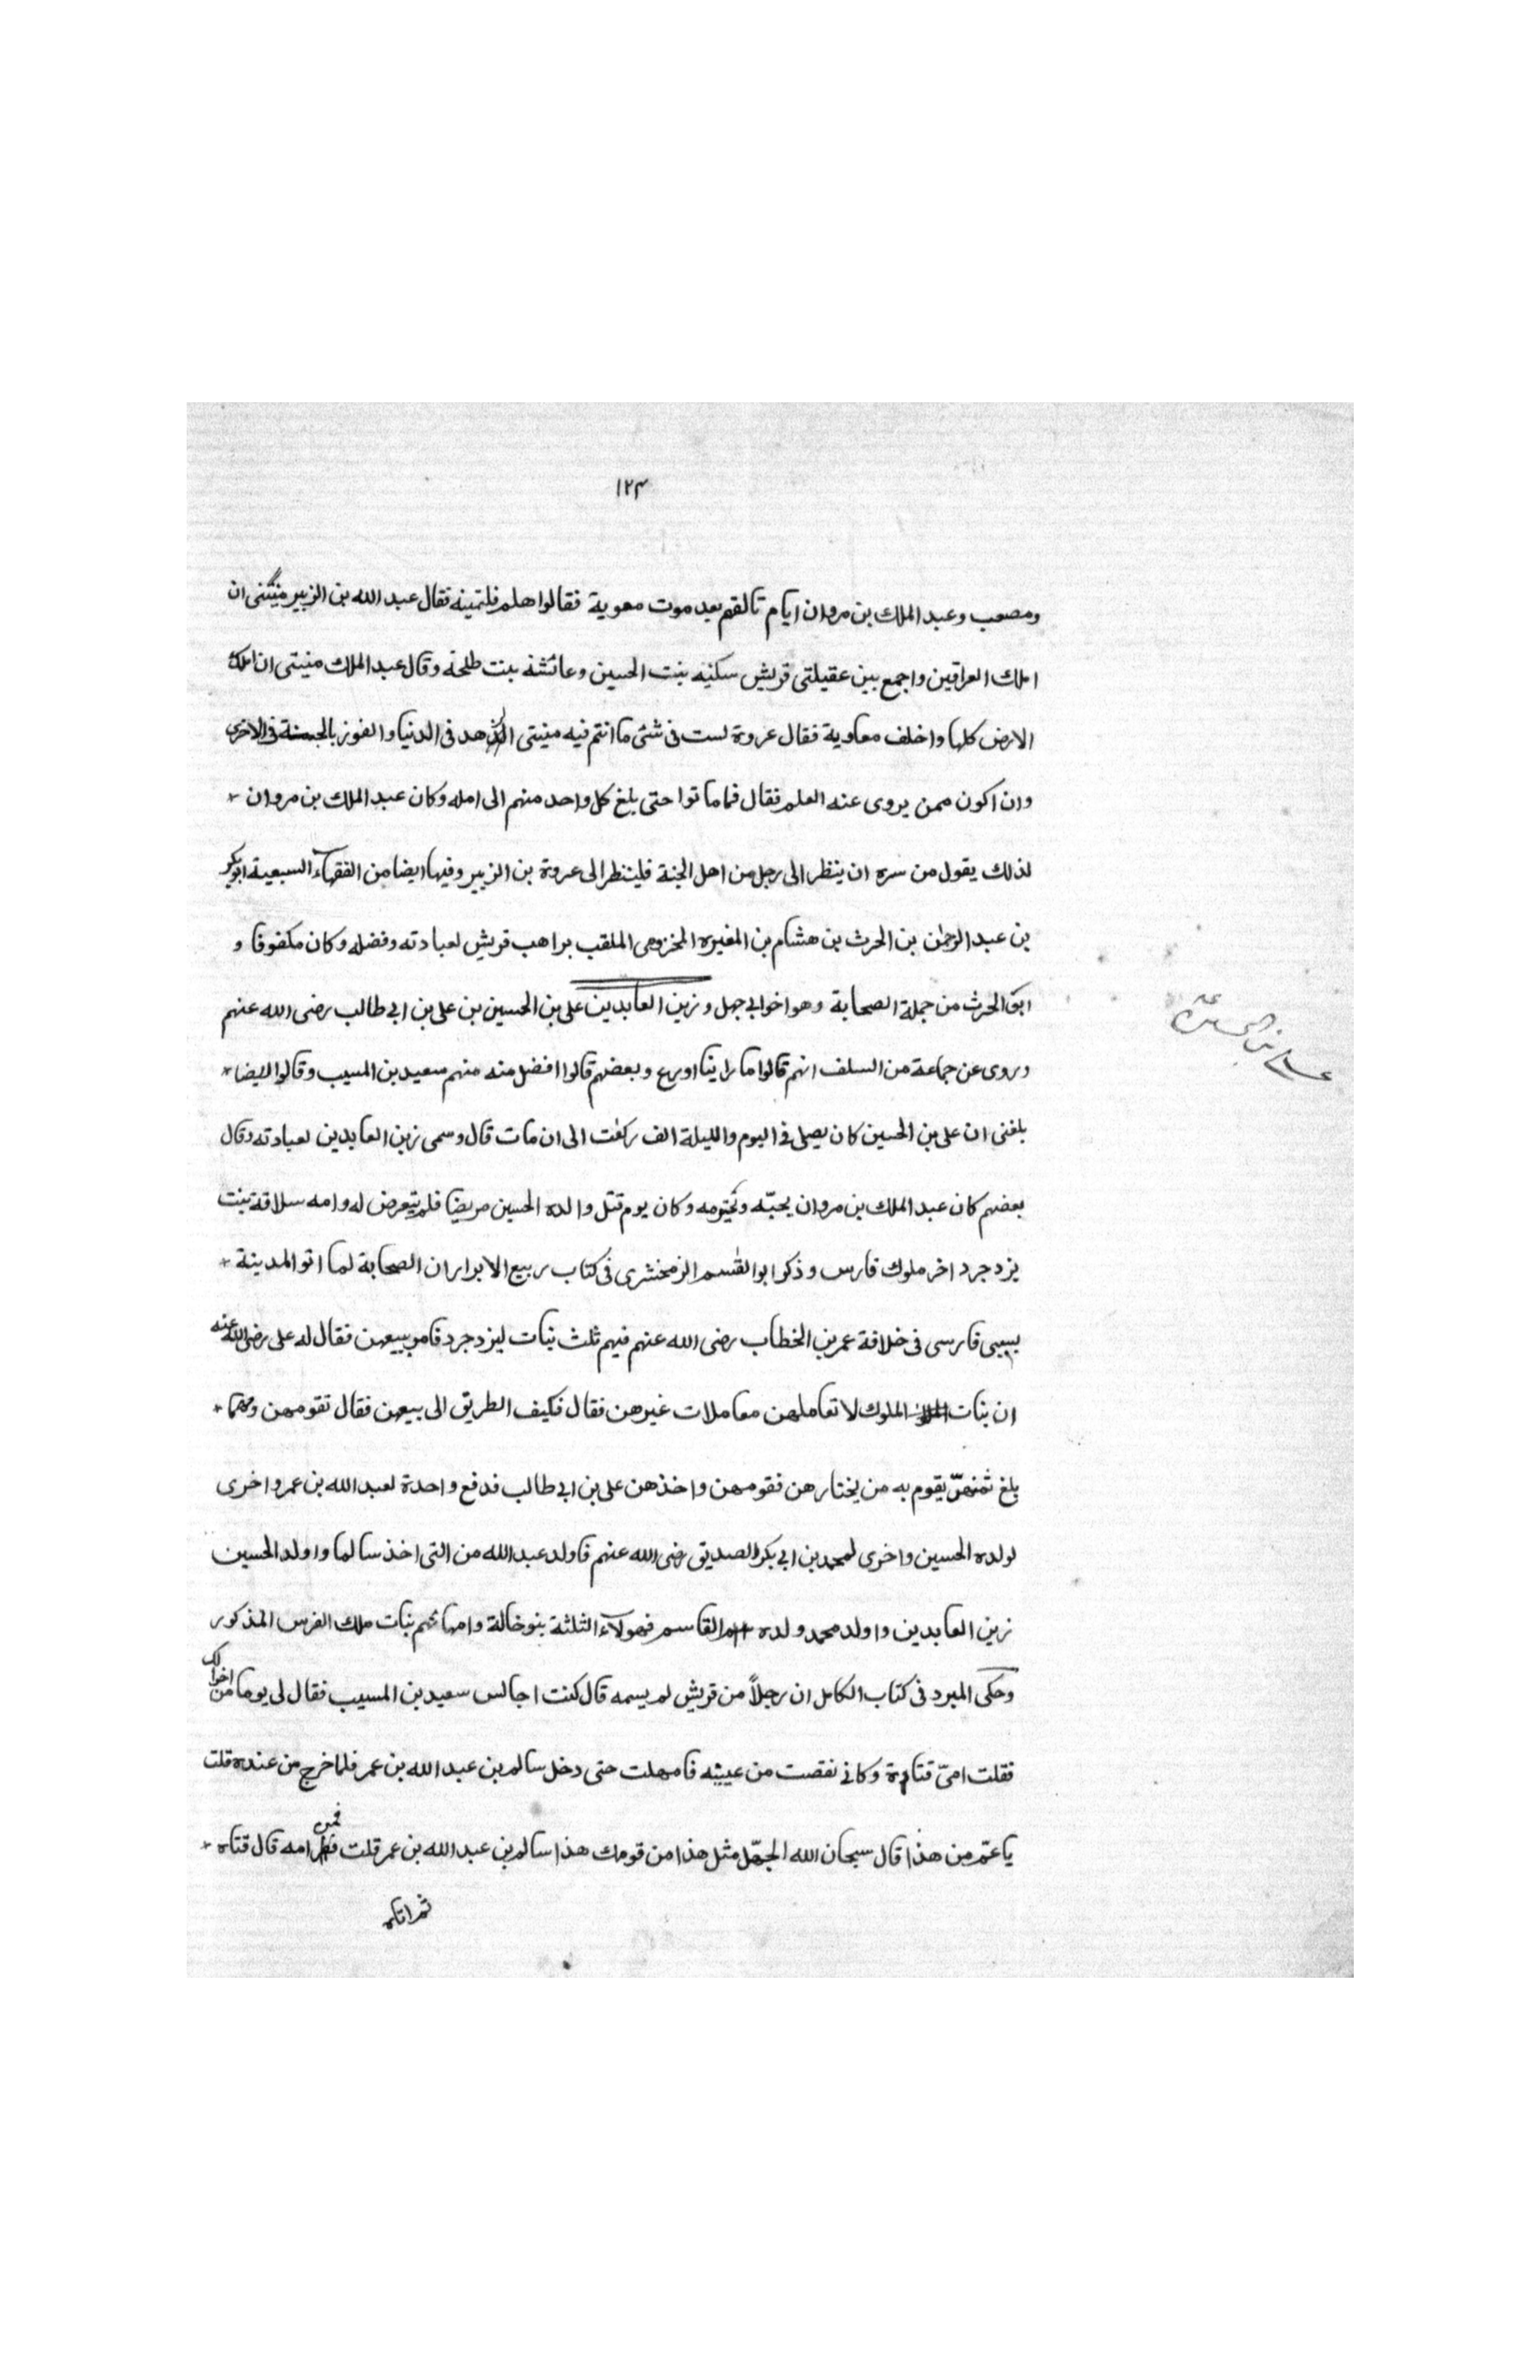 ١٢٣
ومصعب وعبد الملك بن مروان ايام تالفهم بعد موت معوية فقالوا هلم فلنتمينه فقال عبد الله بن الزبير منيتى ان
املك العراقين واجمع بين عقيلتى قريش سكنيه بنت الحسين وعائشة بنت طلحة وقال عبد الملك منيتى ان املك
الارض كلها واخلف معاوية فقال عروة لست فى شئى ما انتم فيه منيتى الزهد فى الدنيا والفوز بالجنة فى الاخرى
وان اكون ممن يروى عنه العلم فقال فما ماتوا حتى بلغ كل واحد منهم الى امله وكان عبد الملك بن مروان
لذلك يقول من سره ان ينظر الى رجل من اهل الجنة فلينظر الى عروة بن الزبير وفيها ايضا من الفقهاء السبعية ابوبكر
بن عبد الرحمن بن الحرث بن هشام بن المغيره المخزومى الملقب براهب قريش لعبادته وفضله وكان مكفوفا و
ابوه الحرث من جملة الصحابة وهو اخو ابى جهل وزين العابدين على بن الحسين بن على بن ابى طالب رضى الله عنهم
على بن الحسين
وروى عن جماعة من السلف انهم قالوا ما راينا اورع وبعضهم قالوا افضل منه منهم سعيد بن المسيب وقالوا ايضا
بلغنى ان على بن الحسين كان يصلى فى اليوم والليلة الف ركعت الى ان مات قال وسمى زين العابدين لعبادته وقال
بعضهم كان عبد الملك بن مروان يحبّه ويحترمه وكان يوم قتل والده الحسين مريضا فلم يتعرض له وامه سلاقة بنت
يزدجرد اخر ملوك فارس وذكر ابو القسم الزمخشرى فى كتاب ربيع الابرار ان الصحابة لما اتو المدينة
بسبى فارسى فى خلافة عمر بن الخطاب رضى الله عنهم فيهم ثلث بنات ليزدجرد فامر ببيعهن فقال له على رضى الله عنه
ان بنات الملوك لا تعاملهن معاملات غيرهن فقال فكيف الطريق الى بيعهن فقال تقومهن ومهما
بلغ ثمنهنّ يقوم به من يختارهن فقومهن واخذهن على بن ابى طالب فدفع واحدة لعبد الله بن عمر واخرى
لولده الحسين واخرى لمحمد بن ابى بكر الصديق رضى الله عنهم فاولد عبد الله من التى اخذ سالما واولد الحسين
زين العابدين واولد محمد ولده القاسم فهولآء الثلثة بنو خالة وامهاتهم بنات ملك الفرس المذكور
وحكى المبرد فى كتاب الكامل ان رجلاً من قريش لم يسمه قال كنت اجالس سعيد بن المسيب فقال لى يوما من اخوالك
فقلت امىّ فتاة وكانى نقصت من عينيه فامهلت حتى دخل سالم بن عبد الله بن عمر فلما خرج من عنده قلت
يا عمّ من هذا قال سبحان الله اتجهّل مثل هذا من قومك هذا سالم بن عبد الله بن عمر قلت فمن امه قال فتاه
ثم اتاه